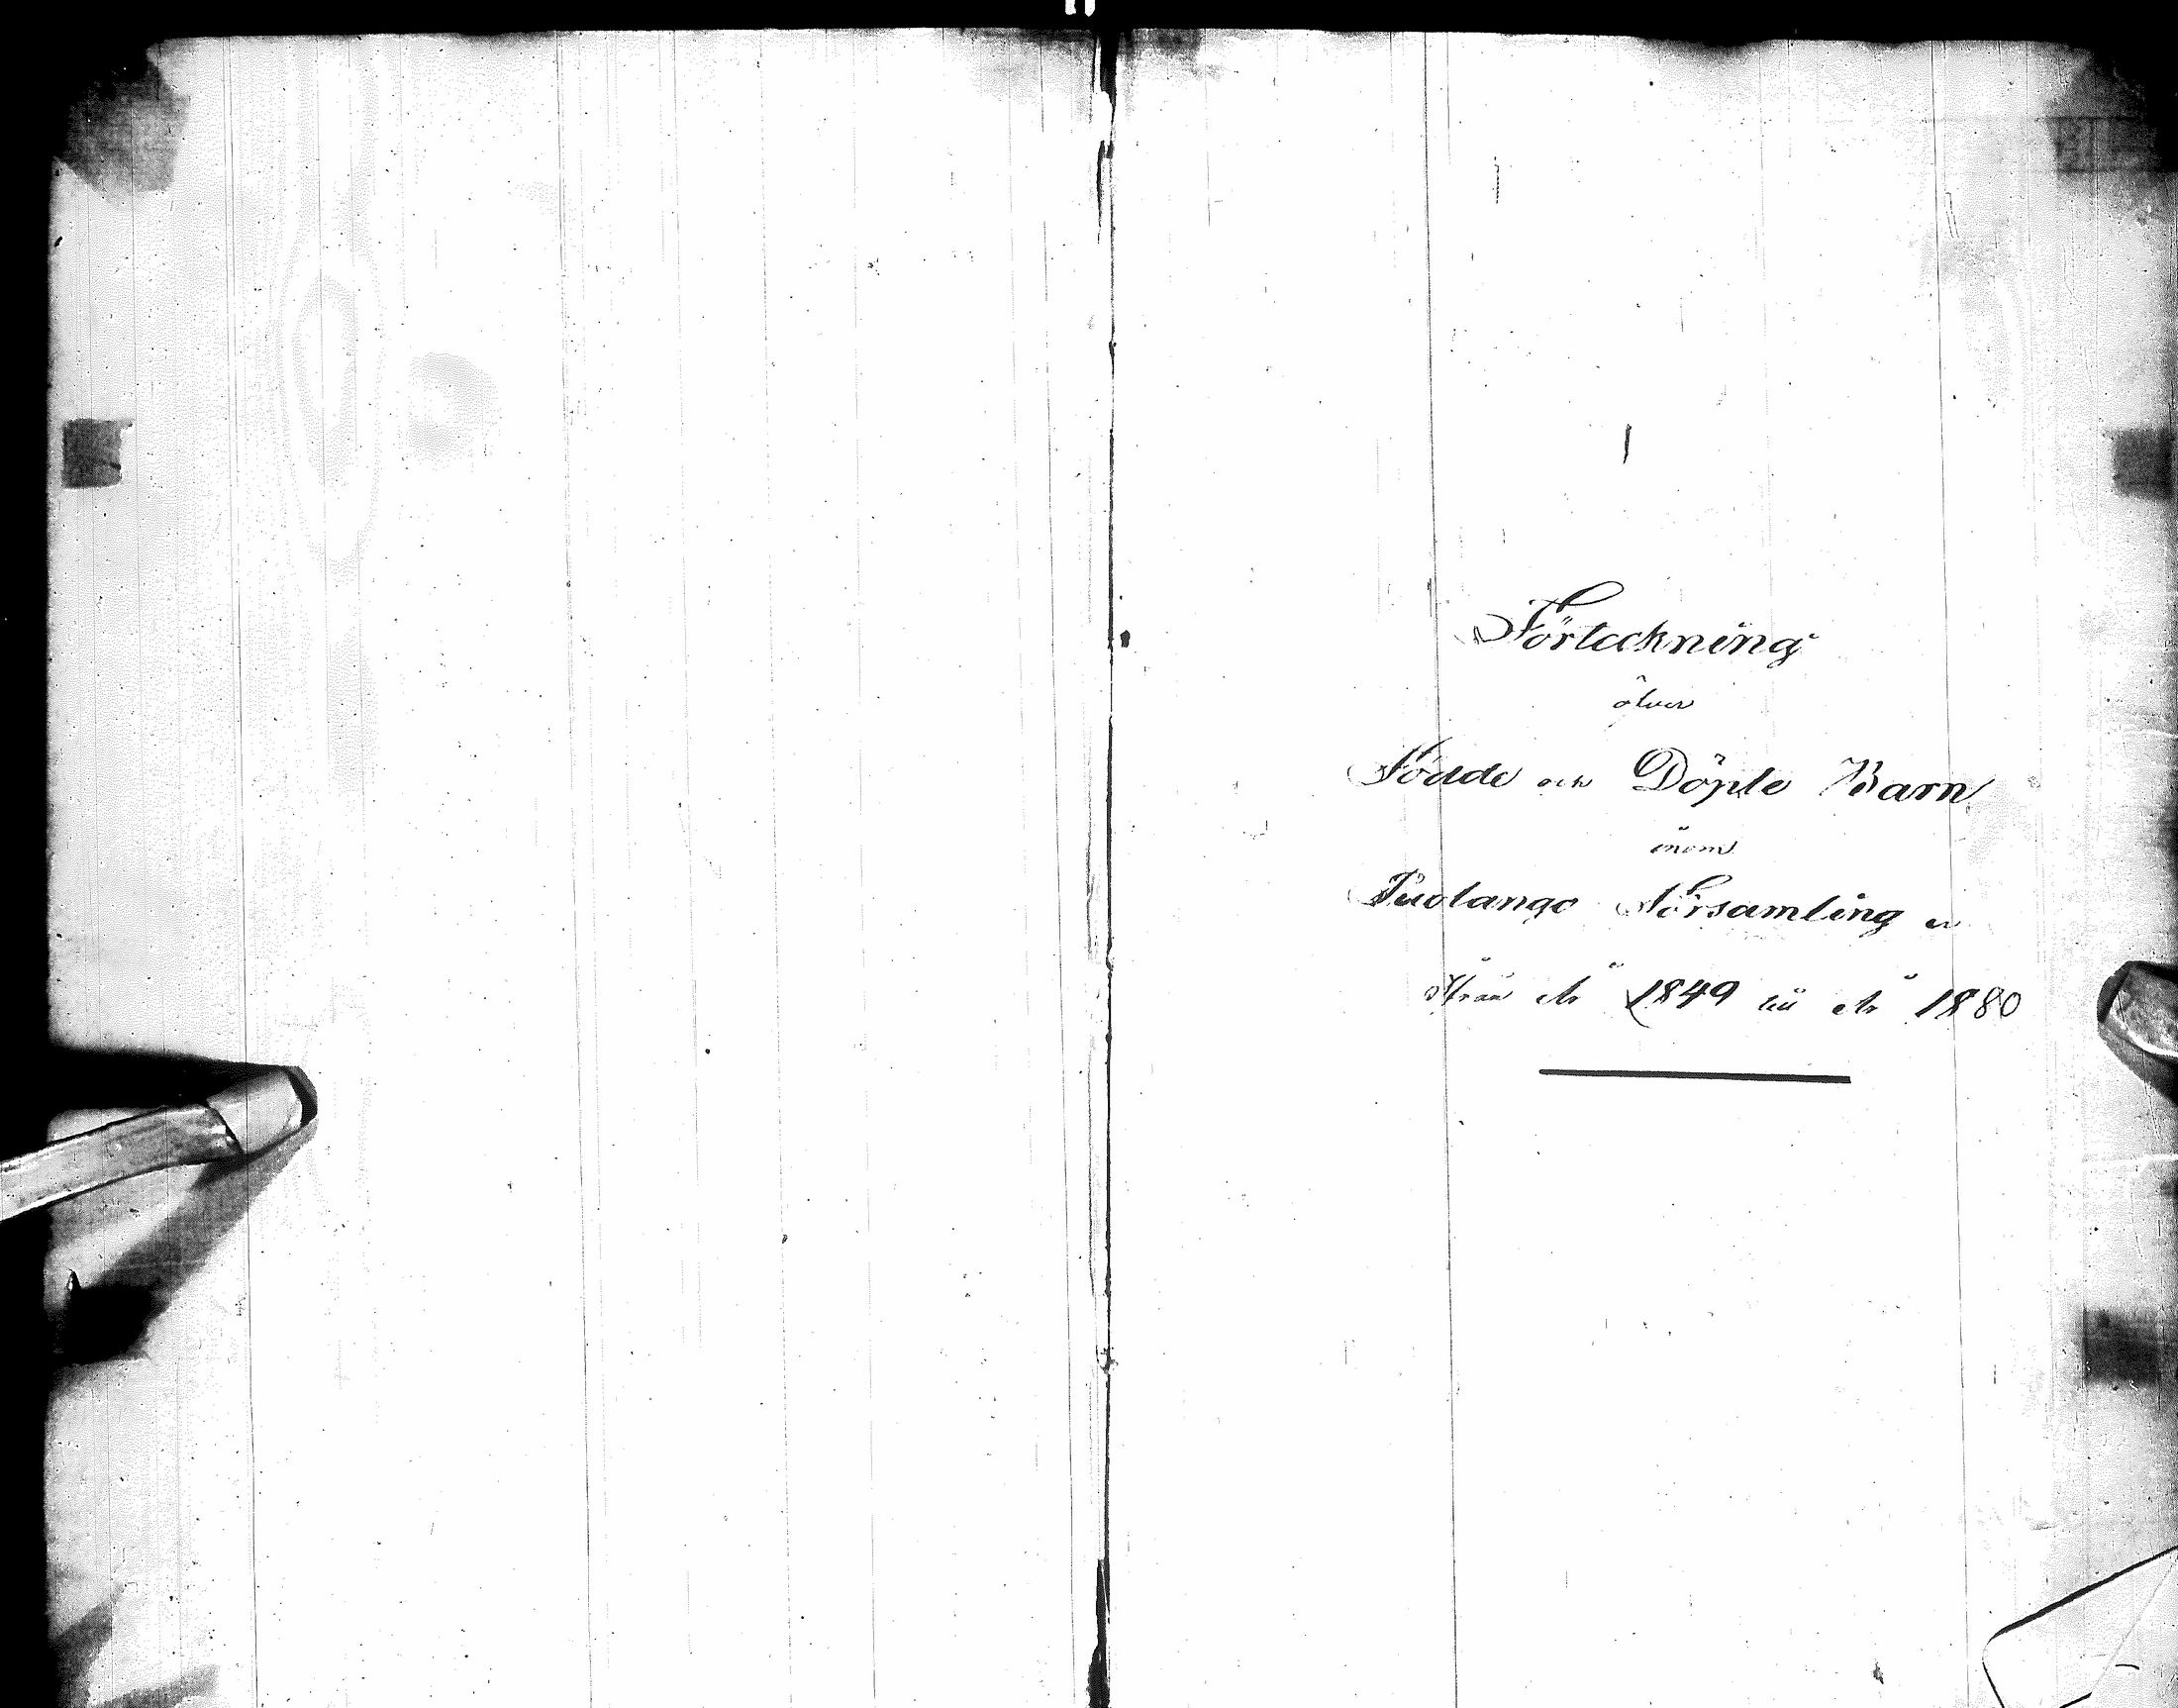 Förteckning
öfver
Födde och Döpte Barn
inom
Pudasjärvi Församling
Från År 1849 till År 1880